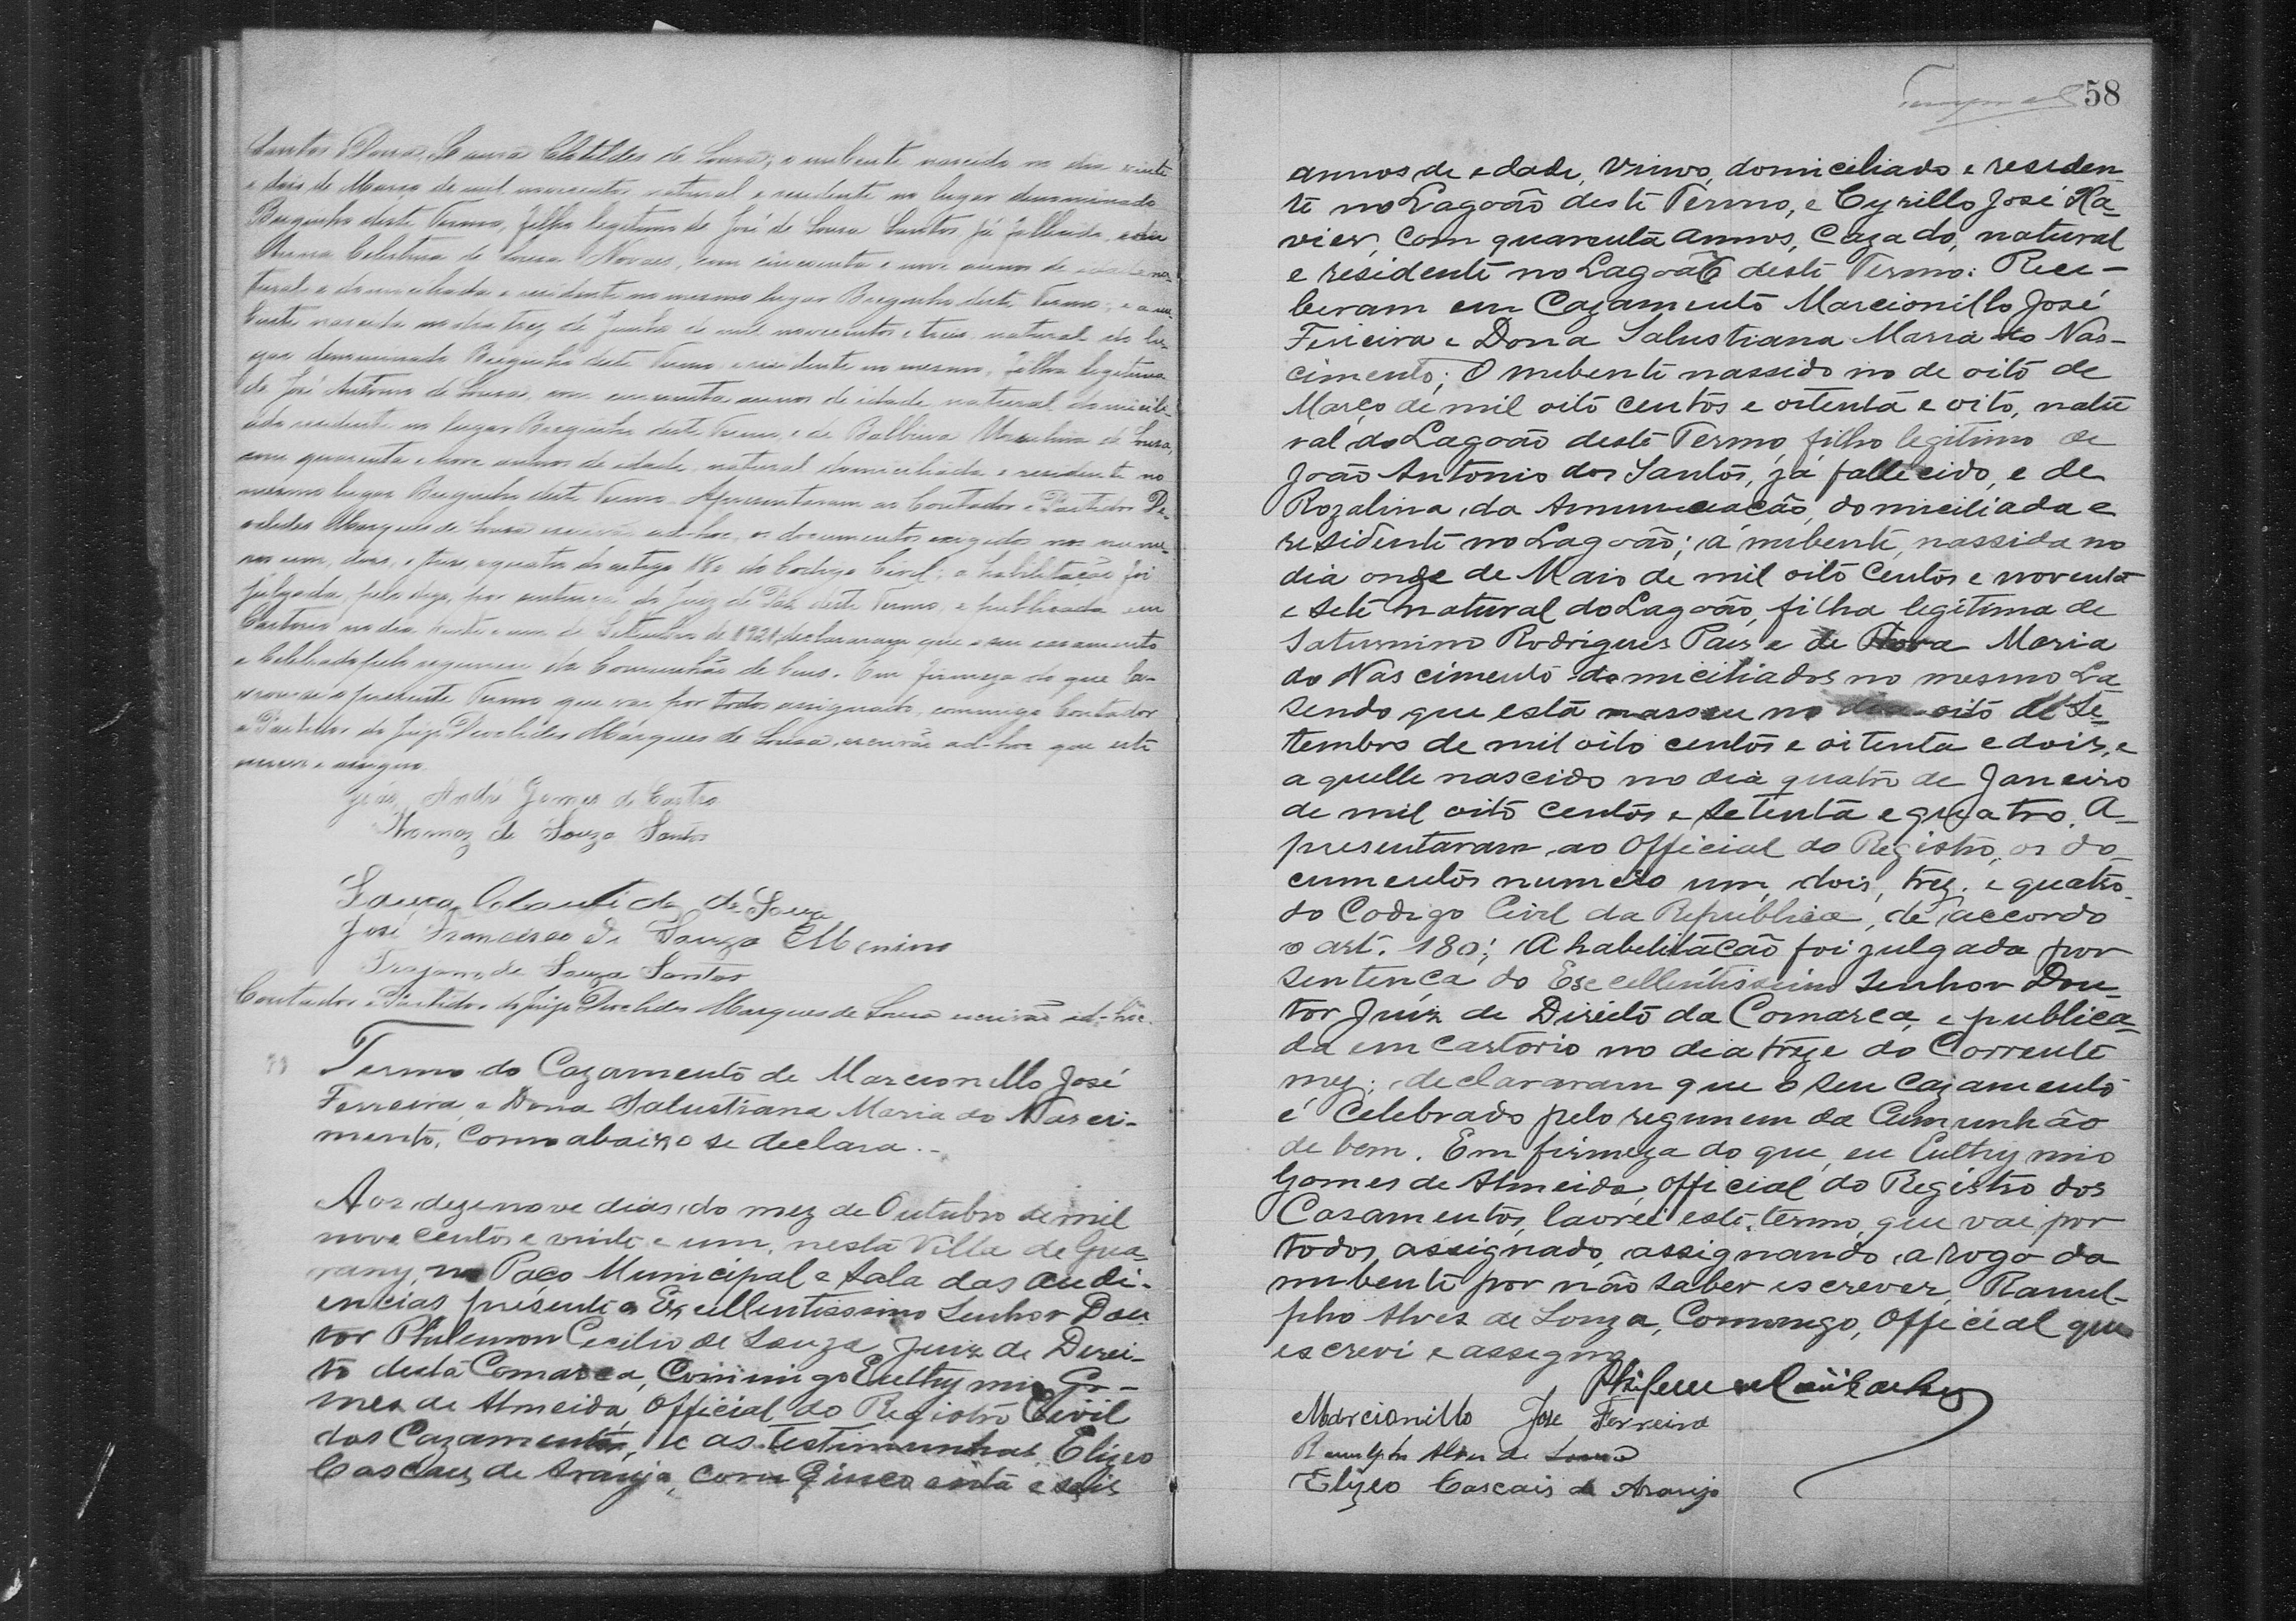 Santos Dona Laura Clotildes de Sousa; o nubente nascido no dia vinte
e dois de Março de mil novecentos natural e residente no lugar denominado
Breginho deste Termo, filho legitimo de José de Sousa Santos, já fallecido, e de
Anna Celestina de Sousa Novaes, com cincoenta e nove annos de idade na-
tural e domiciliada e residente no mesmo lugar Breginho deste Termo; e a nu-
bente nascida no dia trez de Junho de mil novecentos e tres natural do lu-
gar denominado Breginho deste Termo, e residente no mesmo, filha legitima
de José Antonio de Sousa, com cincoenta annos de idade, natural domicili-
ado residente no lugar Breginho deste Termo, e de Balbina de Sousa,
com quarenta e nove annos de idade, natural domiciliada e residente no
mesmo lugar Breginho deste Termo. Apresentaram ao Contador e Partidor
Marques de Sousa escrivão ad-hoc, os documentos exigidos nos nume-
ros um, dois, e tres, e quatro do artigo 180 do Codigo Civil; a habilitação foi
julgada, pelo digo, por sentença do Juiz de Paz deste Termo, e publicada em
Cartorio no dia vinte e um de Setembro de 1921 declararam que o seu casamento
e Celebrado pelo regimen da Comunhão de bens. Em firmeza do que la-
vrou-se o presente Termo que vai por todos assignado, commigo Contador
e Partidor do Juizo Marques de Sousa, escrivão ad-hoc que este
escrevi e assigno.
André Gomes de Castro
Thomaz de Souza Santos
Laura de Souza
José Francisco de Souza Menino
Trajano de Souza Santos
Contador e Partidor do Juizo Marques de Sousa escrivão ad-hoc.
Termo do Cazamento de Marcionillo José
Ferreira e Dona Salustiana Maria do Nasci-
mento, Como abaixo se declara.-
Aos dezenove dias do mez de Outubro de mil
nove centos e vinte e um, nesta Villa de Gua
rany, no Paço Municipal e sala das audi-
encias presente o Excellentissimo Senhor Dou
tor Philemon Cecilio de Souza Juiz de Direi-
to desta Comarca, Commigo Euthymio Go-
mes de Almeida, Official do Registro Civil
dos Cazamentos, e as testimunhas, Elizeo
Cascaes de Araujo, com cincoenta e seis
58
annos de edade, Viuvo, domiciliado e residen
te no Lagoão deste Termo, e Cyrillo José Xa-
vier, Com quarenta annos, Cazado, natural
e residente no Lagoão deste Termo: Rece-
beram em Cazamento Marcionillo José
Ferreira e Dona Salustiana Maria do Nas-
cimento; O nubente nassido no de oito de
Março de mil oito centos e oitenta e oito, natu
ral do Lagoão deste Termo, filho legitimo de
João Antonio dos Santos, já fallecido, e de
Rozalina da Annunciacão, domiciliada e
residente no Lagoão; a nubente, nassida no
dia onze de Maio de mil oito Centos e noventa
e sete natural do Lagoão, filha legitima de
Saturnino Rodrigues Paes e de Maria
do Nascimento domiciliados no mesmo La-
sendo que esta nasceu no dia oito de Se-
tembro de mil oito centos e oitenta e dois, e
aquelle nascido no dia quatro de Janeiro
de mil oito centos e setenta e quatro. A-
presentaram ao Official do Registro, os do-
cumentos numero um, dois, trez. e quatro
do Codigo Civil da Republica, de accordo
o art. 180; A habilitacão foi julgada por
sentença do Excellentissimo Senhor Dou-
tor Juiz de Direito da Comarca, e publica-
da em Cartorio no dia treze do Corrente
mez; declararam que o seu Cazamento
é Celebrado pelo regimen da Cumunhão
de bem. Em firmeza do que, eu Euthymio
Gomes de Almeida, Official do Registro dos
Casamentos, lavrei este termo, que vai por
todos, assignado, assignando a rogo da
nubente por não saber escrever, Ranul-
pho Alves de Souza, Commigo, Official que
escrevi e assigno
Marcionillo Jose Ferreira
Ranulpho Alves de Souza
Elizeo Cascais de Araujo